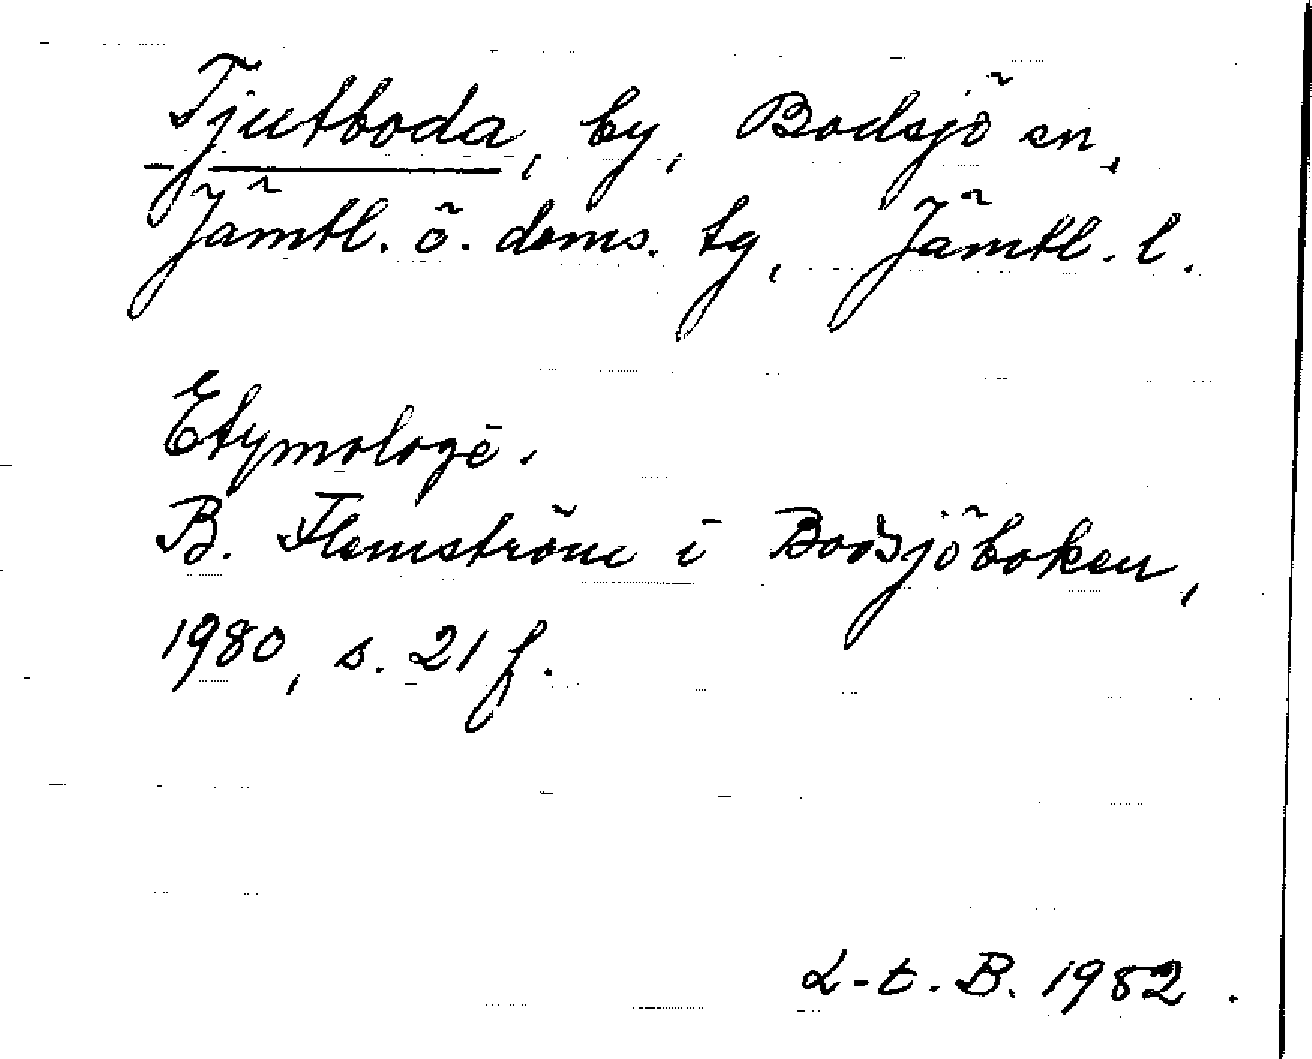 Tjutboda, by, Bodsjö sn,
Jämtl. ö. doms. tg, Jämtl. l.
Etymologi.
B. Flemström i Bodsjöboken,
1980, s. 21 f.
L-t. B. 1982.